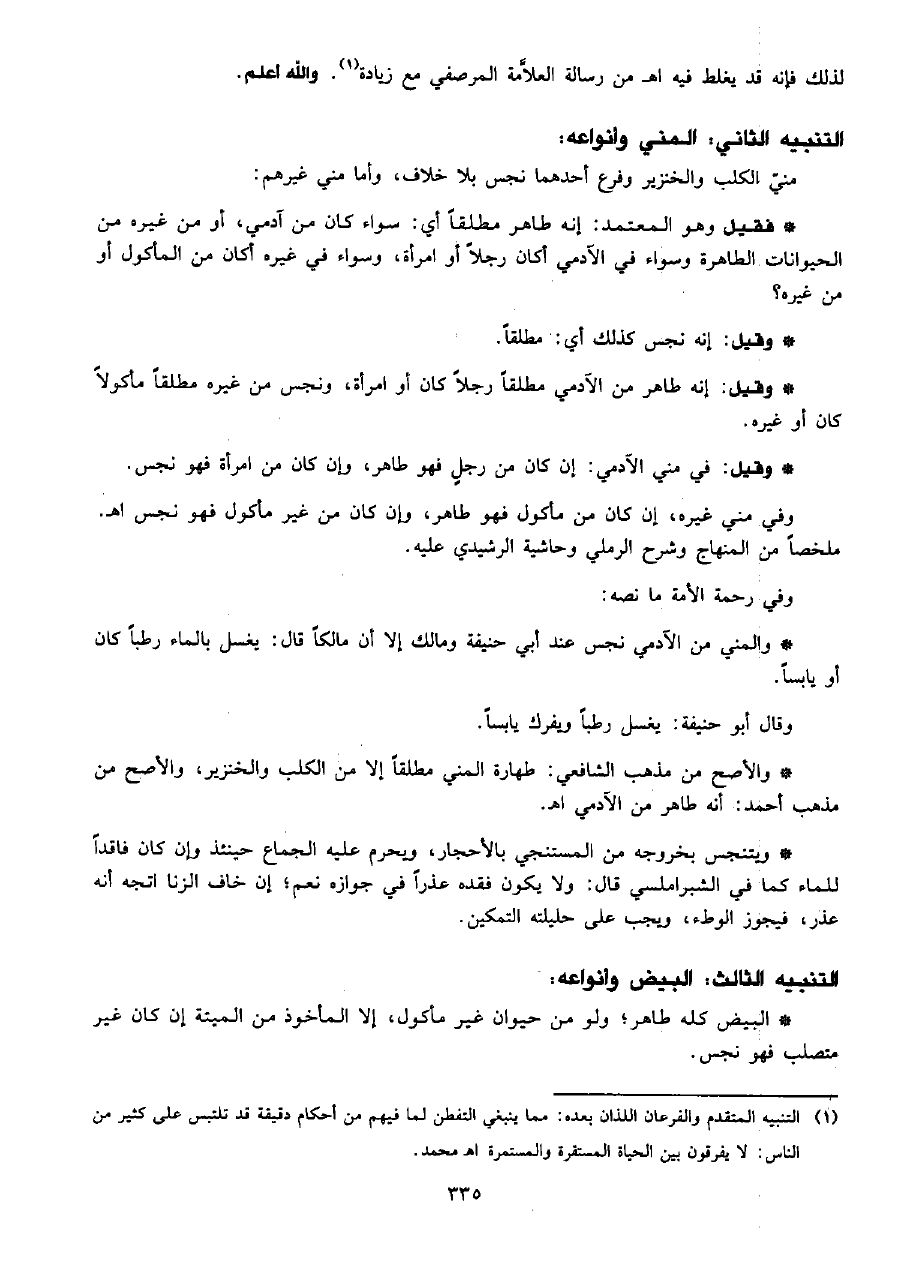 لذلك فإنه قد يغلط فيه اهـ من رسالة العلاَّمة المرصفي مع زيادة(١). والله أعلم.
التنبيه الثاني: المني وأنواعه:
منيّ الكلب والخنزير وفرع أحدهما نجس بلا خلاف، وأما مني غيرهم:
* فقيل وهو المعتمد: إنه طاهر مطلقاً أي: سواء كان من آدمي، أو من غيره من
الحيوانات الطاهرة وسواء في الآدمي أكان رجلاً أو امرأة، وسواء في غيره أكان من المأكول أو
من غيره؟
* وقيل: إنه نجس كذلك أي: مطلقاً.
* وقيل: إنه طاهر من الآدمي مطلقاً رجلاً كان أو امرأة، ونجس من غيره مطلقاً مأكولاً
كان أو غيره.
* وقيل: في مني الآدمي: إن كان من رجلٍ فهو طاهر، وإن كان من امرأة فهو نجس.
وفي مني غيره، إن كان من مأكول فهو طاهر، وإن كان من غير مأكول فهو نجس اهـ.
ملخصاً من المنهاج وشرح الرملي وحاشية الرشيدي عليه.
وفي رحمة الأمة ما نصه:
* والمني من الآدمي نجس عند أبي حنيفة ومالك إلا أن مالكاً قال: يغسل بالماء رطباً كان
أو يابساً.
وقال أبو حنيفة: يغسل رطباً ويفرك يابساً.
* والأصح من مذهب الشافعي: طهارة المني مطلقاً إلا من الكلب والخنزير، والأصح من
مذهب أحمد: أنه طاهر من الآدمي اهـ.
* ويتنجس بخروجه من المستنجي بالأحجار، ويحرم عليه الجماع حينئذ وإن كان فاقداً
للماء كما في الشبراملسي قال: ولا يكون فقده عذراً في جوازه نعم؛ إن خاف الزنا اتجه أنه
عذر، فيجوز الوطء، ويجب على حليلته التمكين.
التنبيه الثالث: البيض وأنواعه:
* البيض كله طاهر؛ ولو من حيوان غير مأكول، إلا المأخوذ من الميتة إن كان غير
متصلب فهو نجس.
(١) التنبيه المتقدم والفرعان اللذان بعده: مما ينبغي التفطن لما فيهم من أحكام دقيقة قد تلتبس على كثير من
الناس: لا يفرقون بين الحياة المستقرة والمستمرة اهـ محمد.
٣٣٥